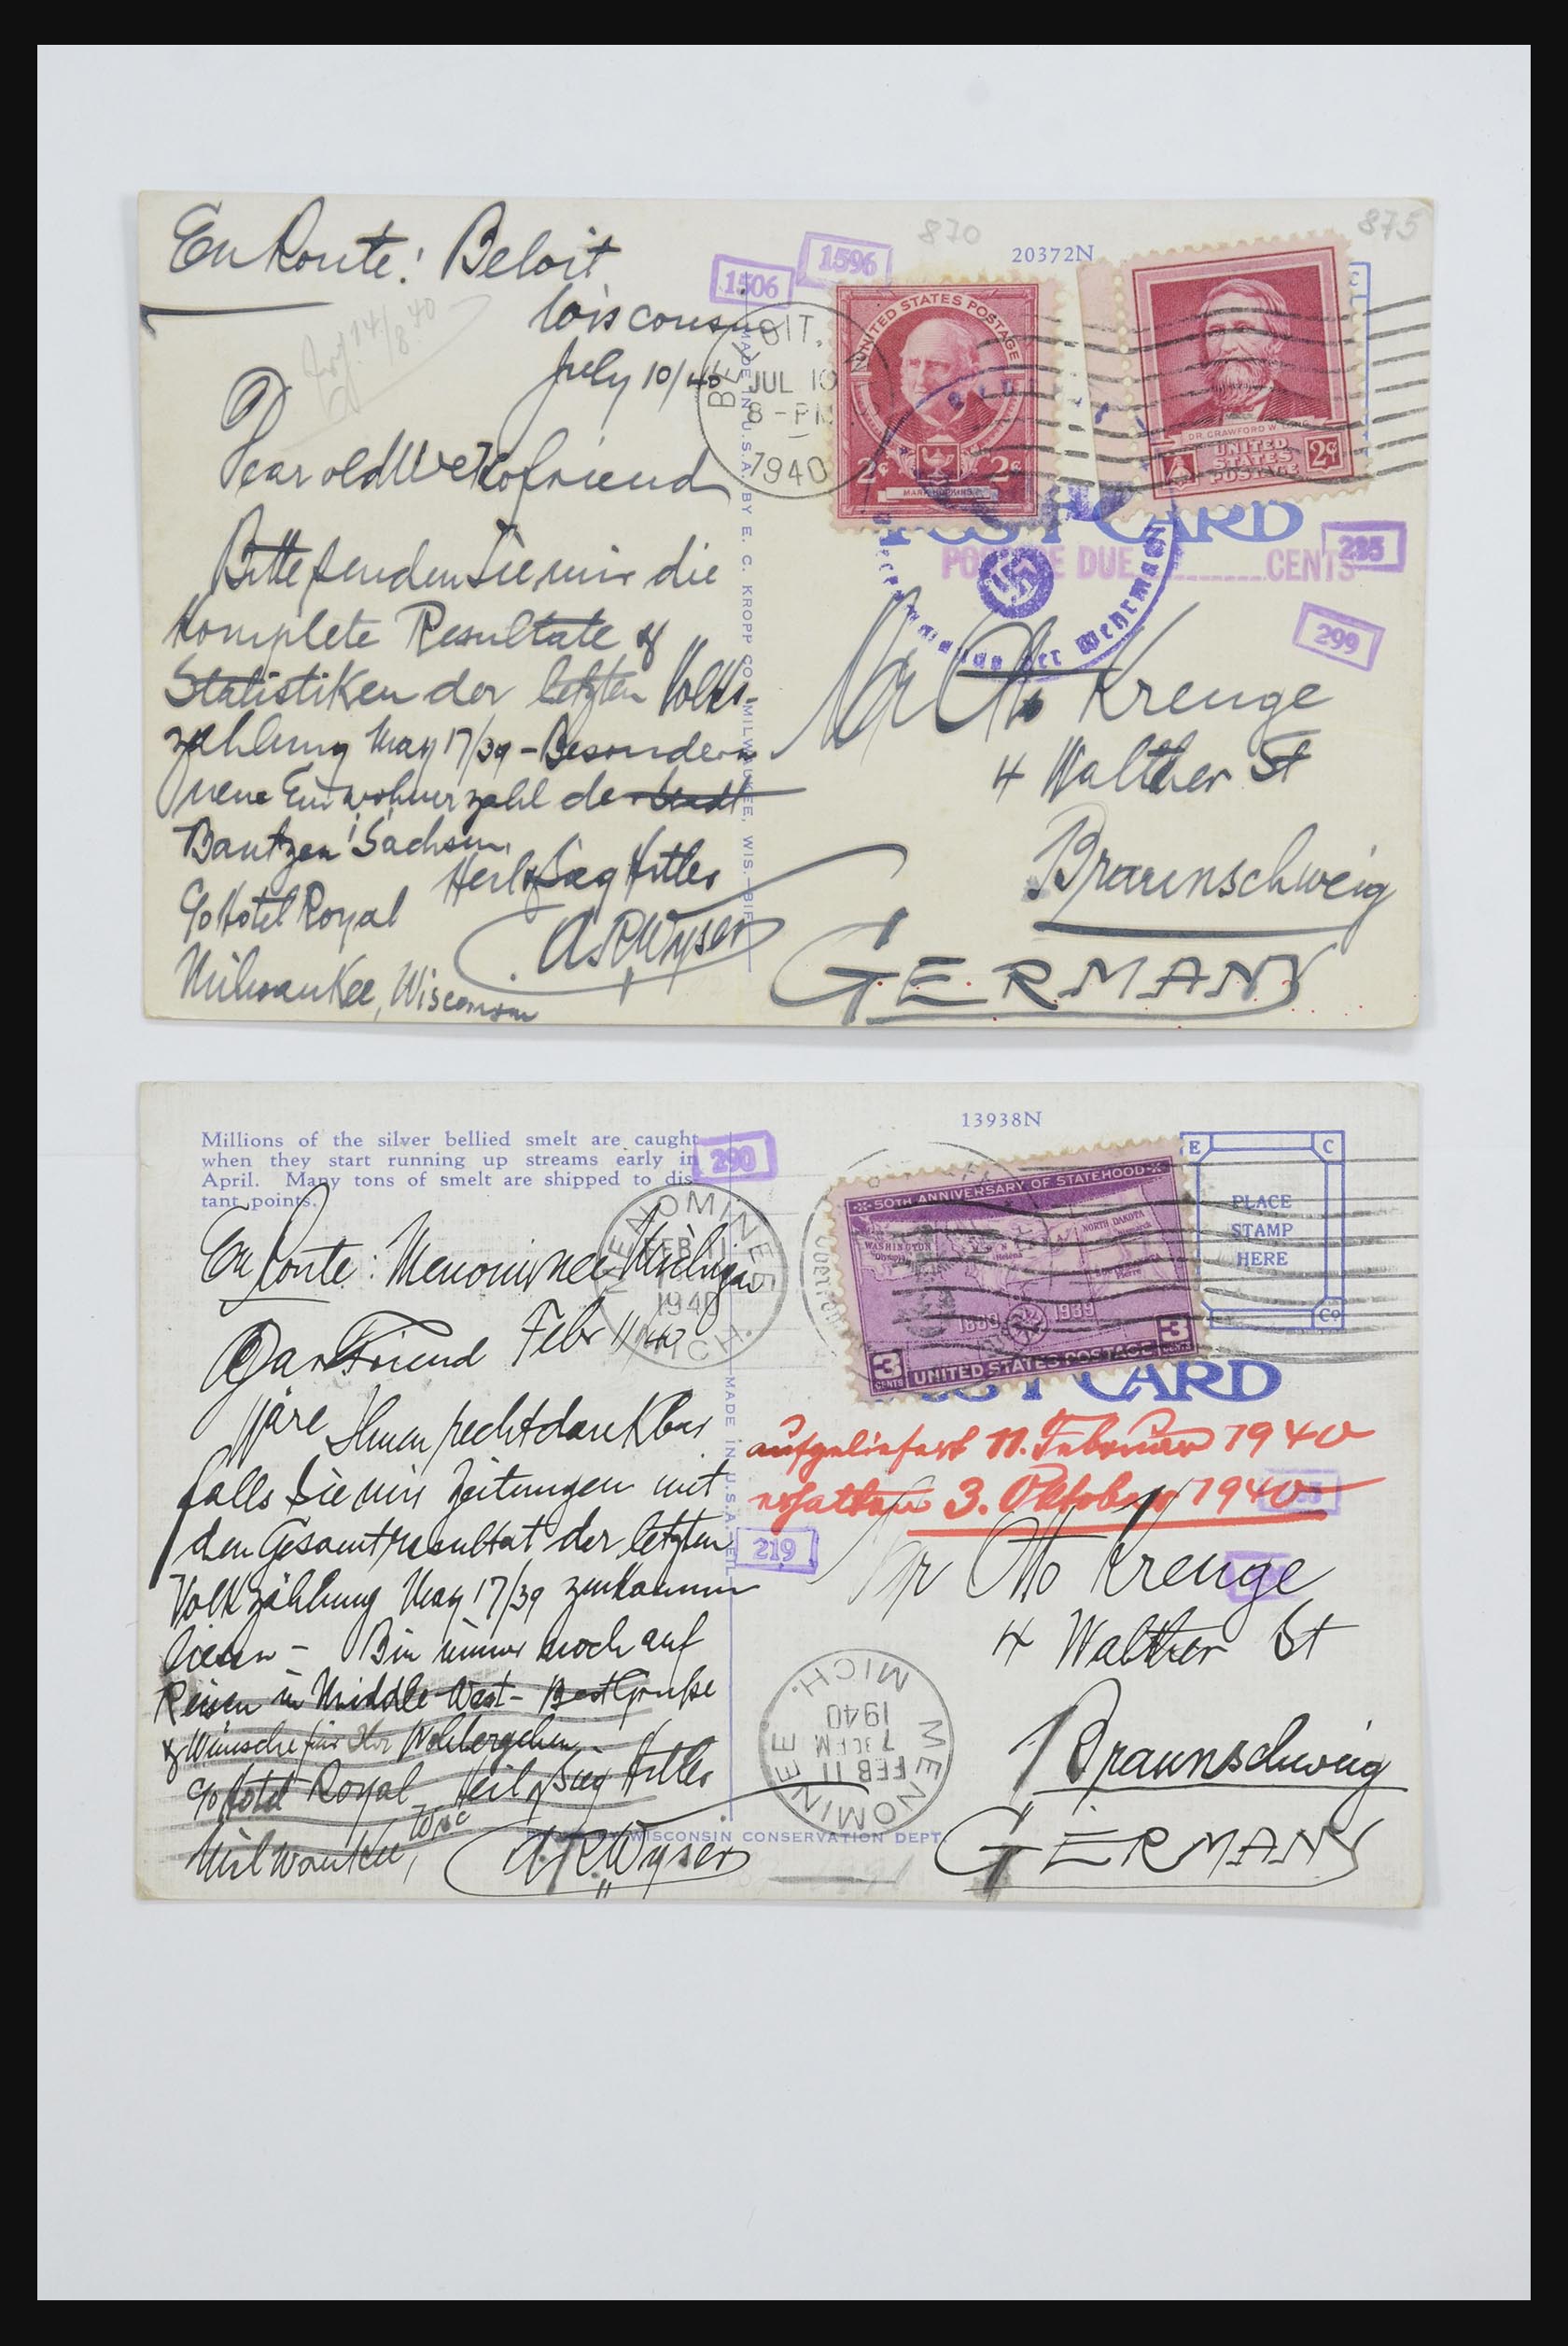 En Route: Beloit
Wisconsin
July 10/40
14/8 40
Dear old friend
Bitte senden Sie mir die
Komplete Resultate &
Statistiken der letzten Volks-
zählung May 17/39 - Besonders
neue Einwohnerzahl der Stadt
Bautzen Sachsen
Heil & Sieg Hitler
c/o Hotel Royal
A R Wyser
Milwaukee, Wisconsin
870
875
20372N
1506
1596
BELOIT,
JUL 10
8 - PM
1940
UNITED STATES POSTAGE
2¢ 2¢
MARK HOPKINS
DR. CRAWFORD W. LONG
UNITED
STATES
POSTAGE
2¢
POST CARD
POSTAGE DUE CENTS
295
299
der Wehrmacht
MADE IN U.S.A. BY E. C. KROPP CO. MILWAUKEE, WIS.
Mr Otto Krenge
4 Walther St
Braunschweig
GERMANY
Millions of the silver bellied smelt are caught
when they start running up streams early in
April. Many tons of smelt are shipped to dis-
tant points.
290
13938N
En Route: Menominee Michigan
Febr 11/40
Dear Friend
Wäre Ihnen recht dankbar
falls Sie mir Zeitungen mit
den Gesamtresultat der letzten
Volkzählung May 17/39 zukommen
liesen - Bin immer noch auf
Reisen in Middle West - Best Grüße
& Wünsche für Ihr Wohlergehen -
c/o Hotel Royal Heil & Sieg Hitler
Milwaukee, Wisc
A. R. Wyser
MENOMINEE
FEB 11
1940
MICH.
50TH ANNIVERSARY OF STATEHOOD
WASHINGTON
Olympia
Helena
NORTH DAKOTA
Bismarck
SOUTH DAKOTA
Pierre
1889 1939
3 CENTS
UNITED STATES POSTAGE
3 CENTS
E C
PLACE
STAMP
HERE
Co
POST CARD
aufgeliefert 11. Februar 1940
erhalten 3. Oktober 1940
219
MADE IN U.S.A.
Mr Otto Krenge
4 Walther St
Braunschweig
GERMANY
MENOMINEE
FEB 11
7 30 PM
1940
MICH.
WISCONSIN CONSERVATION DEPT